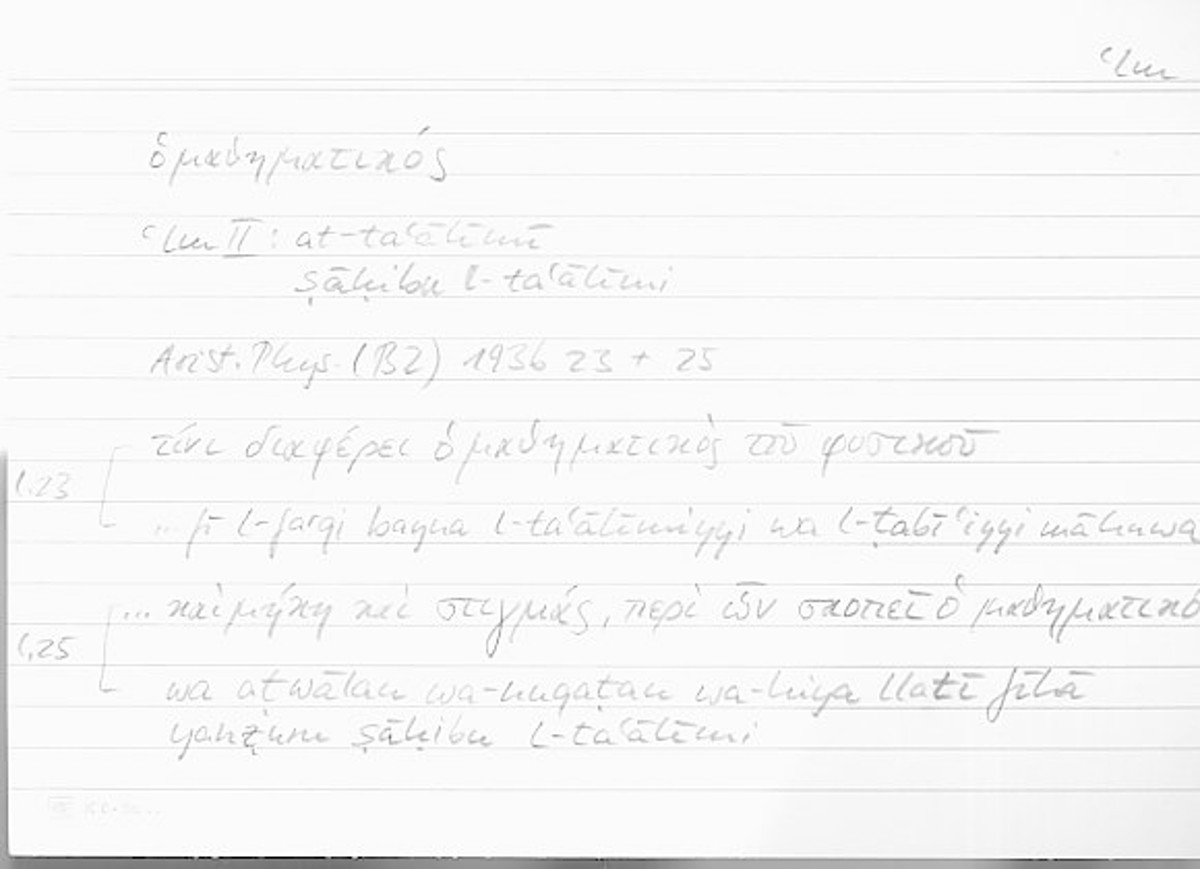 ʿlm
ὁ μαθηματικός
ʿlm II: at-taʿālīmī
ṣāḥibu l-taʿālīmi
Arist. Phys. (B2) 193b 23 + 25
τίνι διαφέρει ὁ μαθηματικὸς τοῦ φυσικοῦ
l.23
... fī l-farqi bayna l-taʿālīmiyyi wa l-ṭabīʿiyyi mā huwa
... καὶ μήκη καὶ στιγμάς, περὶ ὧν σκοπεῖ ὁ μαθηματικό
l.25
wa aṭwālan wa-nuqaṭan wa-hiya llatī fīhā
yanẓuru ṣāḥibu l-taʿālīmi